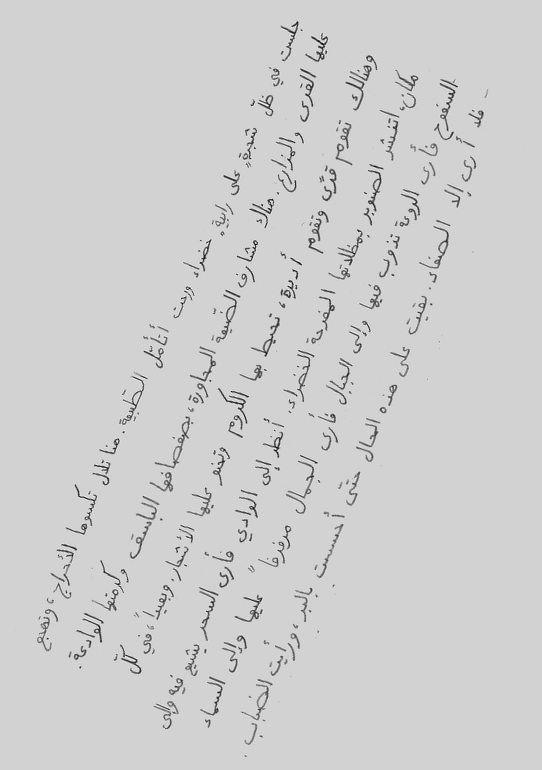 جلست في ظلّ شجرةٍ على رابيةٍ خضراء ورحت أتأمّل الطبيعة. هنا تلال تكسوها الأحراج، وتهجع
عليها القرى والمزارع. هناك مشارف الضّيعة المجاورة، بصفصافها الباسق وكرمتها الوادعة.
وهنالك تقوم قرًى وتقوم أديرة، تحيط بها الكروم وتحنو عليها الأشجار. وبعيداً، في كلّ
مكان، انتشر الصنوبر بمظلاتها المفرحة الخضراء. أنظر إلى الوادي فأرى السحر يشيع فيه وإلى
السفوح فأرى الروعة تذوب فيها وإلى الجبال فأرى الجمال مرفرفاً عليها وإلى السماء
فلا أرى إلا الصفاء. بقيت على هذه الحال حتّى أحسست بالبرد، ورأيت الضباب.